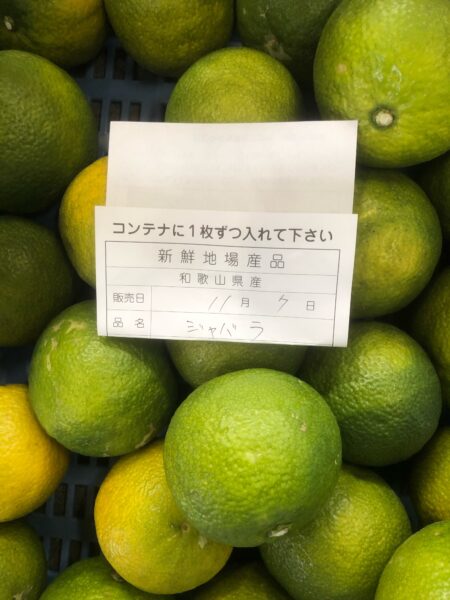 コンテナに1枚ずつ入れて下さい
新鮮地場産品
和歌山県産
販売日 11月 7日
品名 ジャバラ